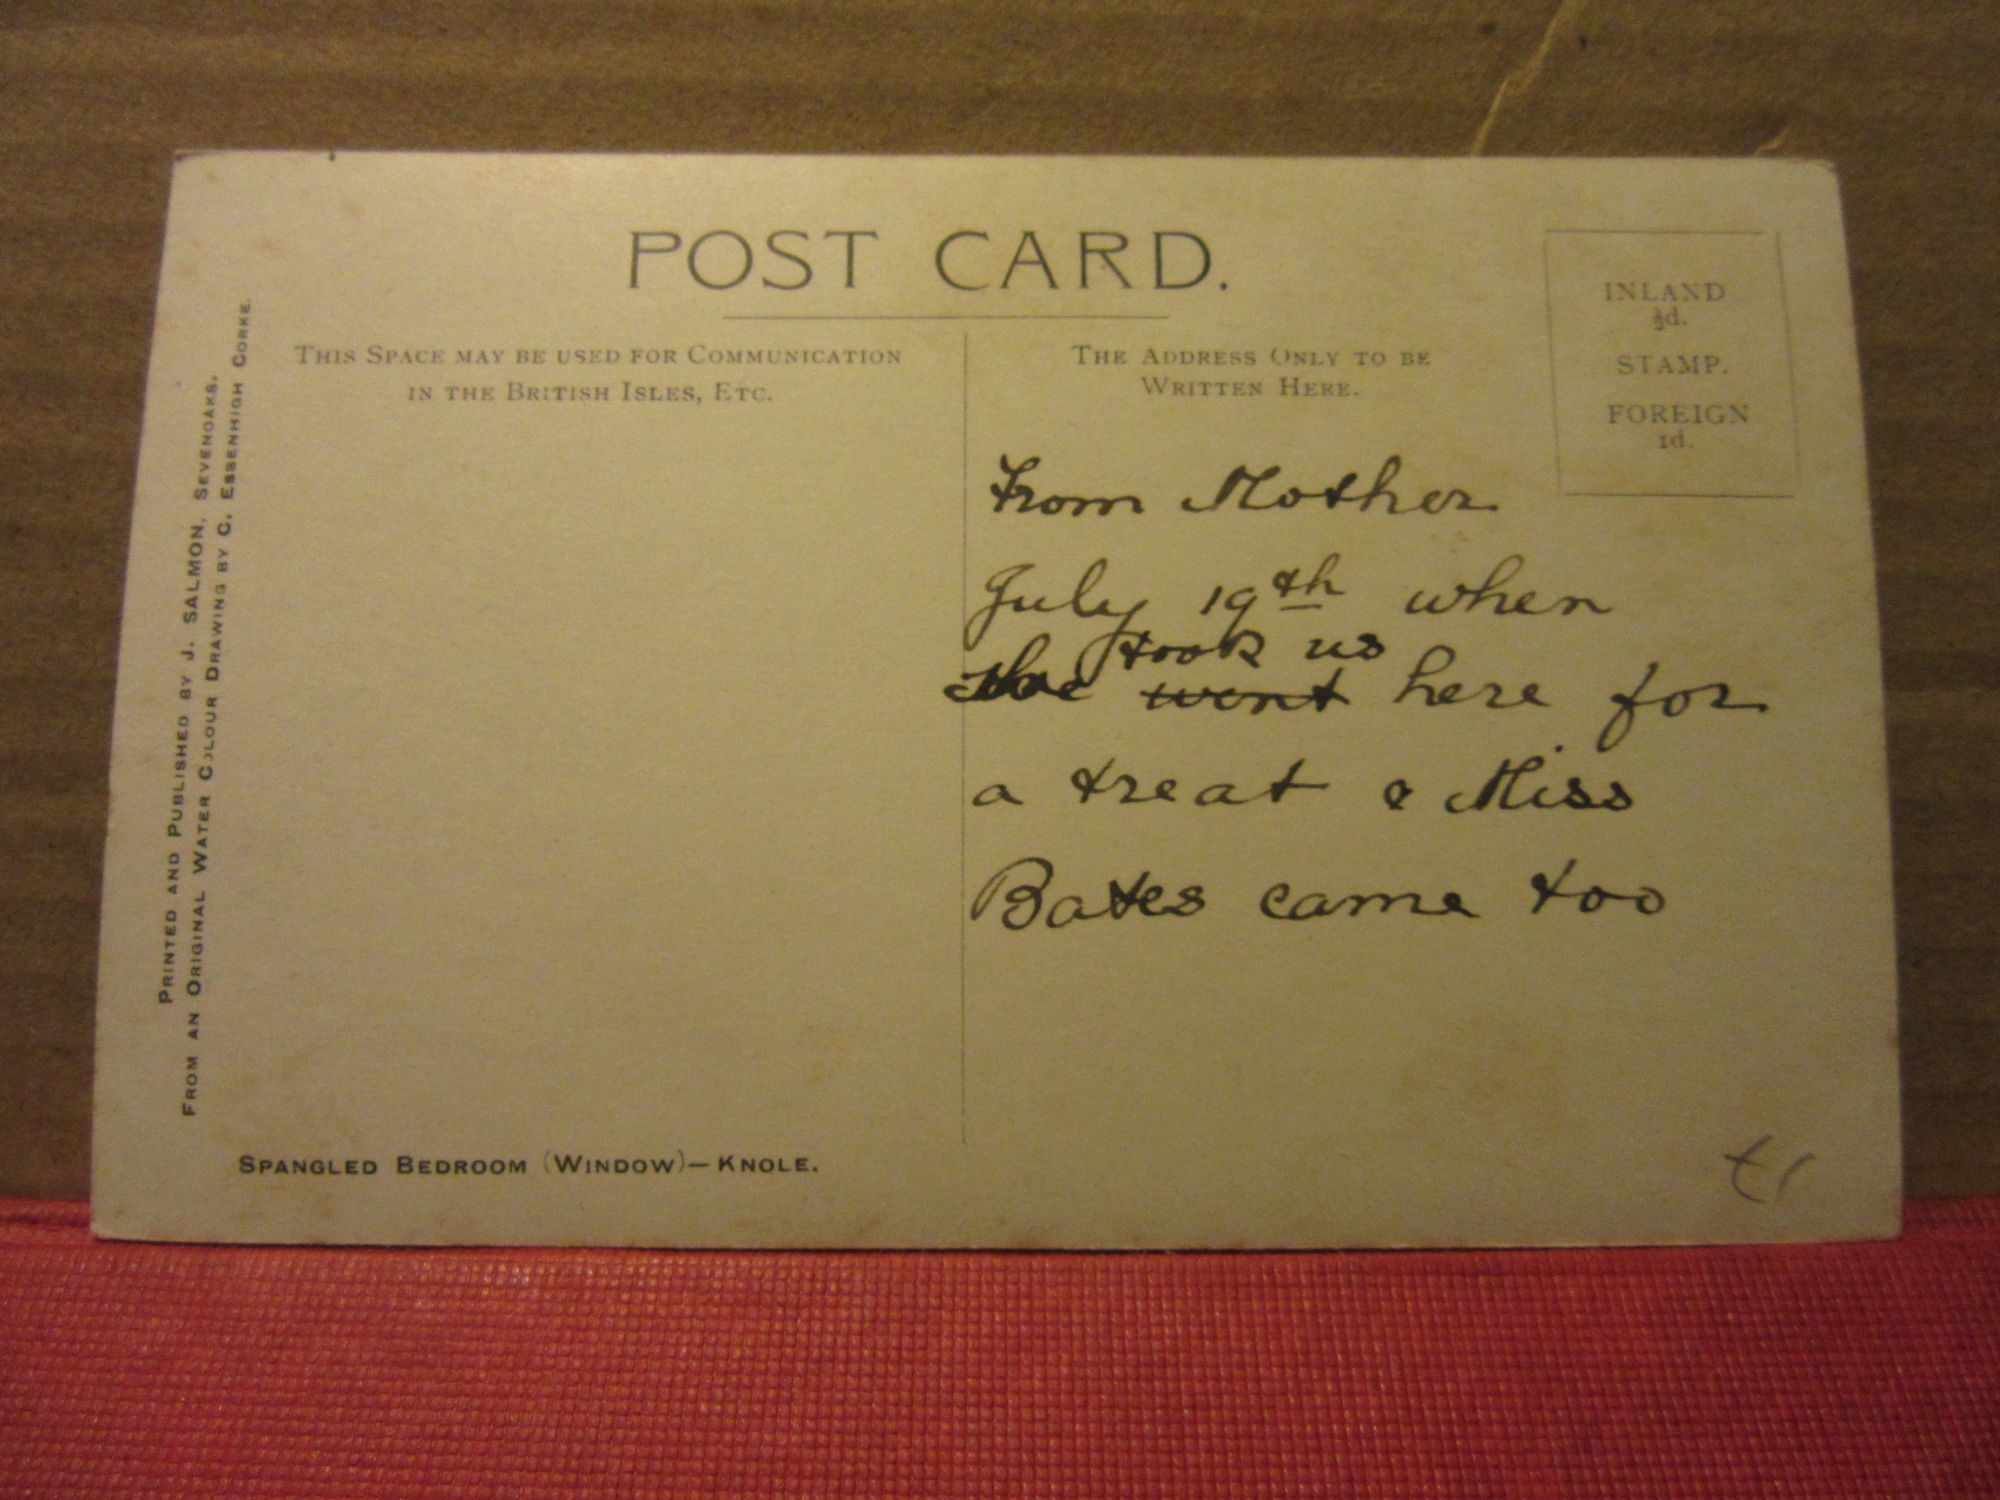 POST CARD.
THIS SPACE MAY BE USED FOR COMMUNICATION
IN THE BRITISH ISLES, ETC.
THE ADDRESS ONLY TO BE
WRITTEN HERE.
INLAND
½d.
STAMP.
FOREIGN
1d.
From Mother
July 19th when
took us
she went here for
a treat & Miss
Bates came too
PRINTED AND PUBLISHED BY J. SALMON, SEVENOAKS.
FROM AN ORIGINAL WATER COLOUR DRAWING BY C. ESSENHIGH CORKE.
SPANGLED BEDROOM (WINDOW)—KNOLE.
£1